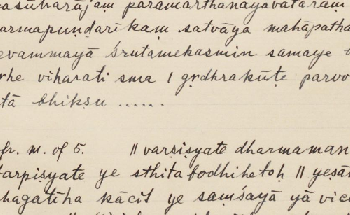 asūtrarājam paramārthanayāvatāram
armapuṇḍarīkaṃ satvāya mahāpatha
evammayā śrutamekasmin samaye
rhe viharati sma | gṛdhrakūṭe parva
tā bhikṣu ......
fr. m. of 5. || varṣiṣyate dharmaman
tarpiṣyate ye sthita bodhihetoḥ || yeṣā
hagatiha kācit ye saṃśayā yā vic